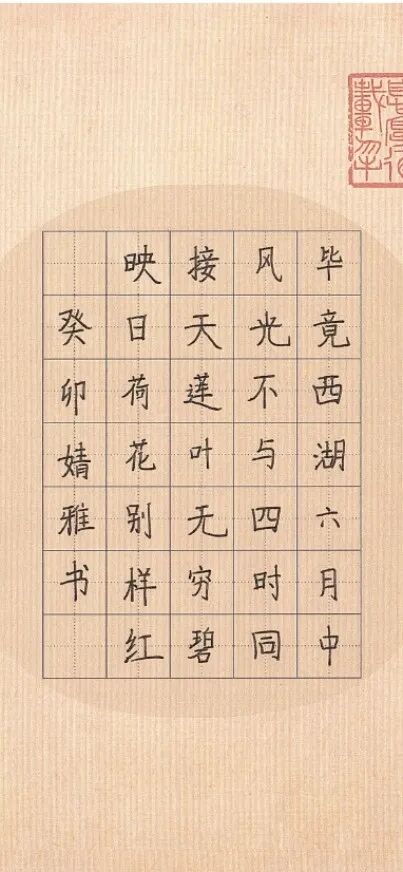 毕竟西湖六月中
风光不与四时同
接天莲叶无穷碧
映日荷花别样红
癸卯婧雅书